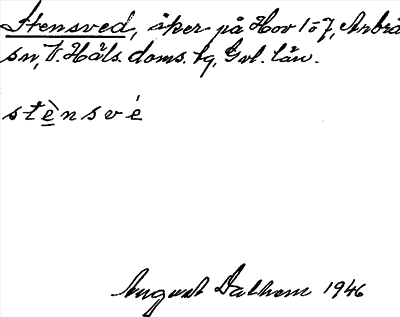 Stensved, åker på Hov 1 o 7, Arbrå
sn, V. Häls. doms. tg, Gvl. län.
stènsvé
August Dalhem 1946